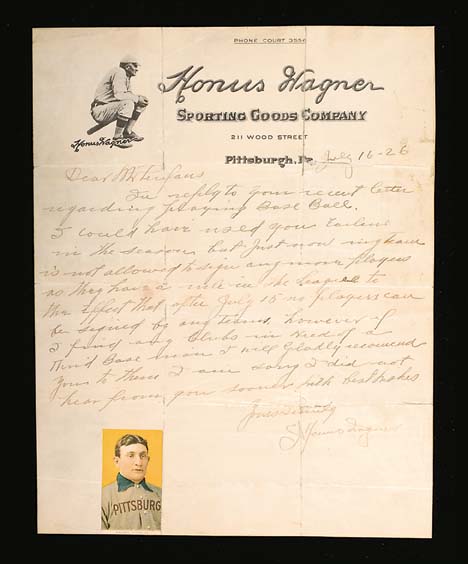 PHONE COURT 3556
Honus Wagner
Honus Wagner
SPORTING GOODS COMPANY
211 WOOD STREET
Pittsburgh, Pa
July 16-26
Dear Mr
In reply to your recent letter
regarding playing Base Ball.
I could have used you Earlier
in the season but Just now my team
is not allowed to sign any more players
as they have a rule in the League to
the Effect that after July 15 no players can
be signed by any teams, however if
I find any Clubs in need of a
third Base man I will Gladly recomend
you to them I am sorry I did not
hear from you sooner with best wishes
Yours
J Honus Wagner
PITTSBURG